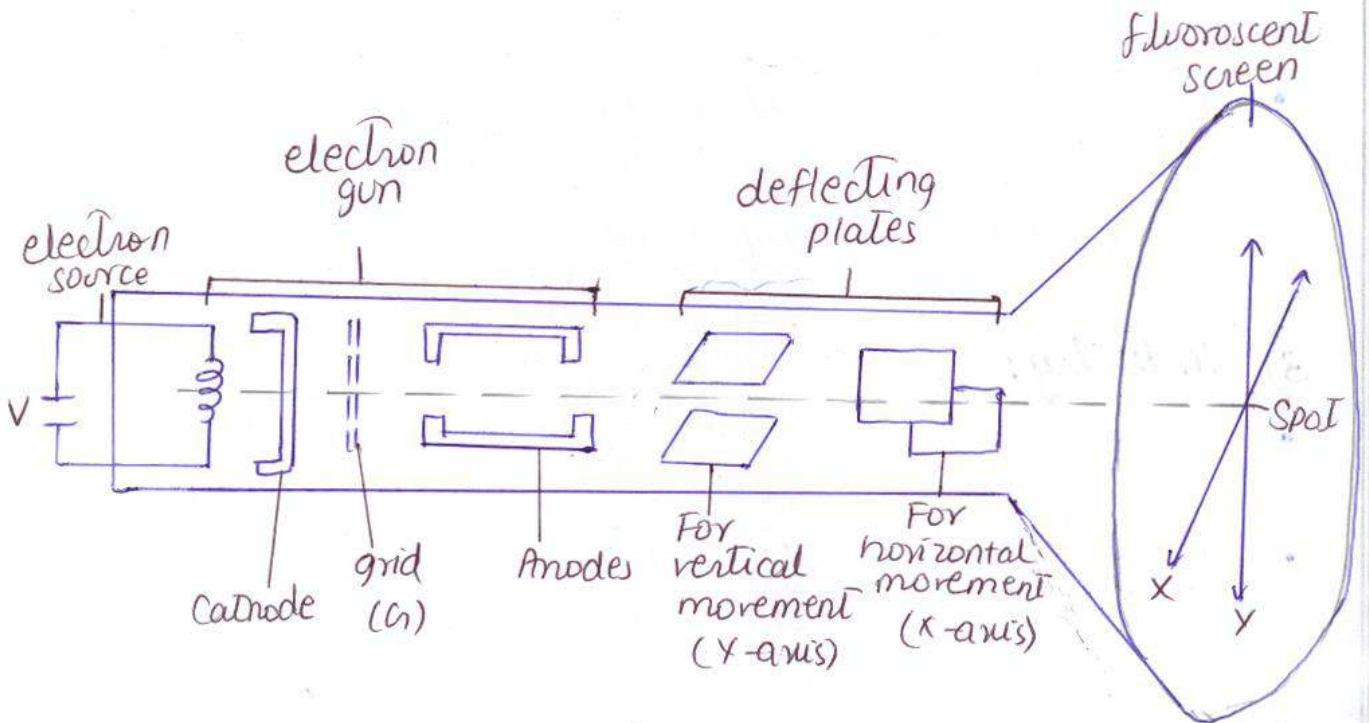 fluoroscent
screen
electron
gun
deflecting
plates
electron
source
V
Spot
Cathode
grid
(G)
Anodes
For
vertical
movement
(Y-axis)
For
horizontal
movement
(X-axis)
X
Y